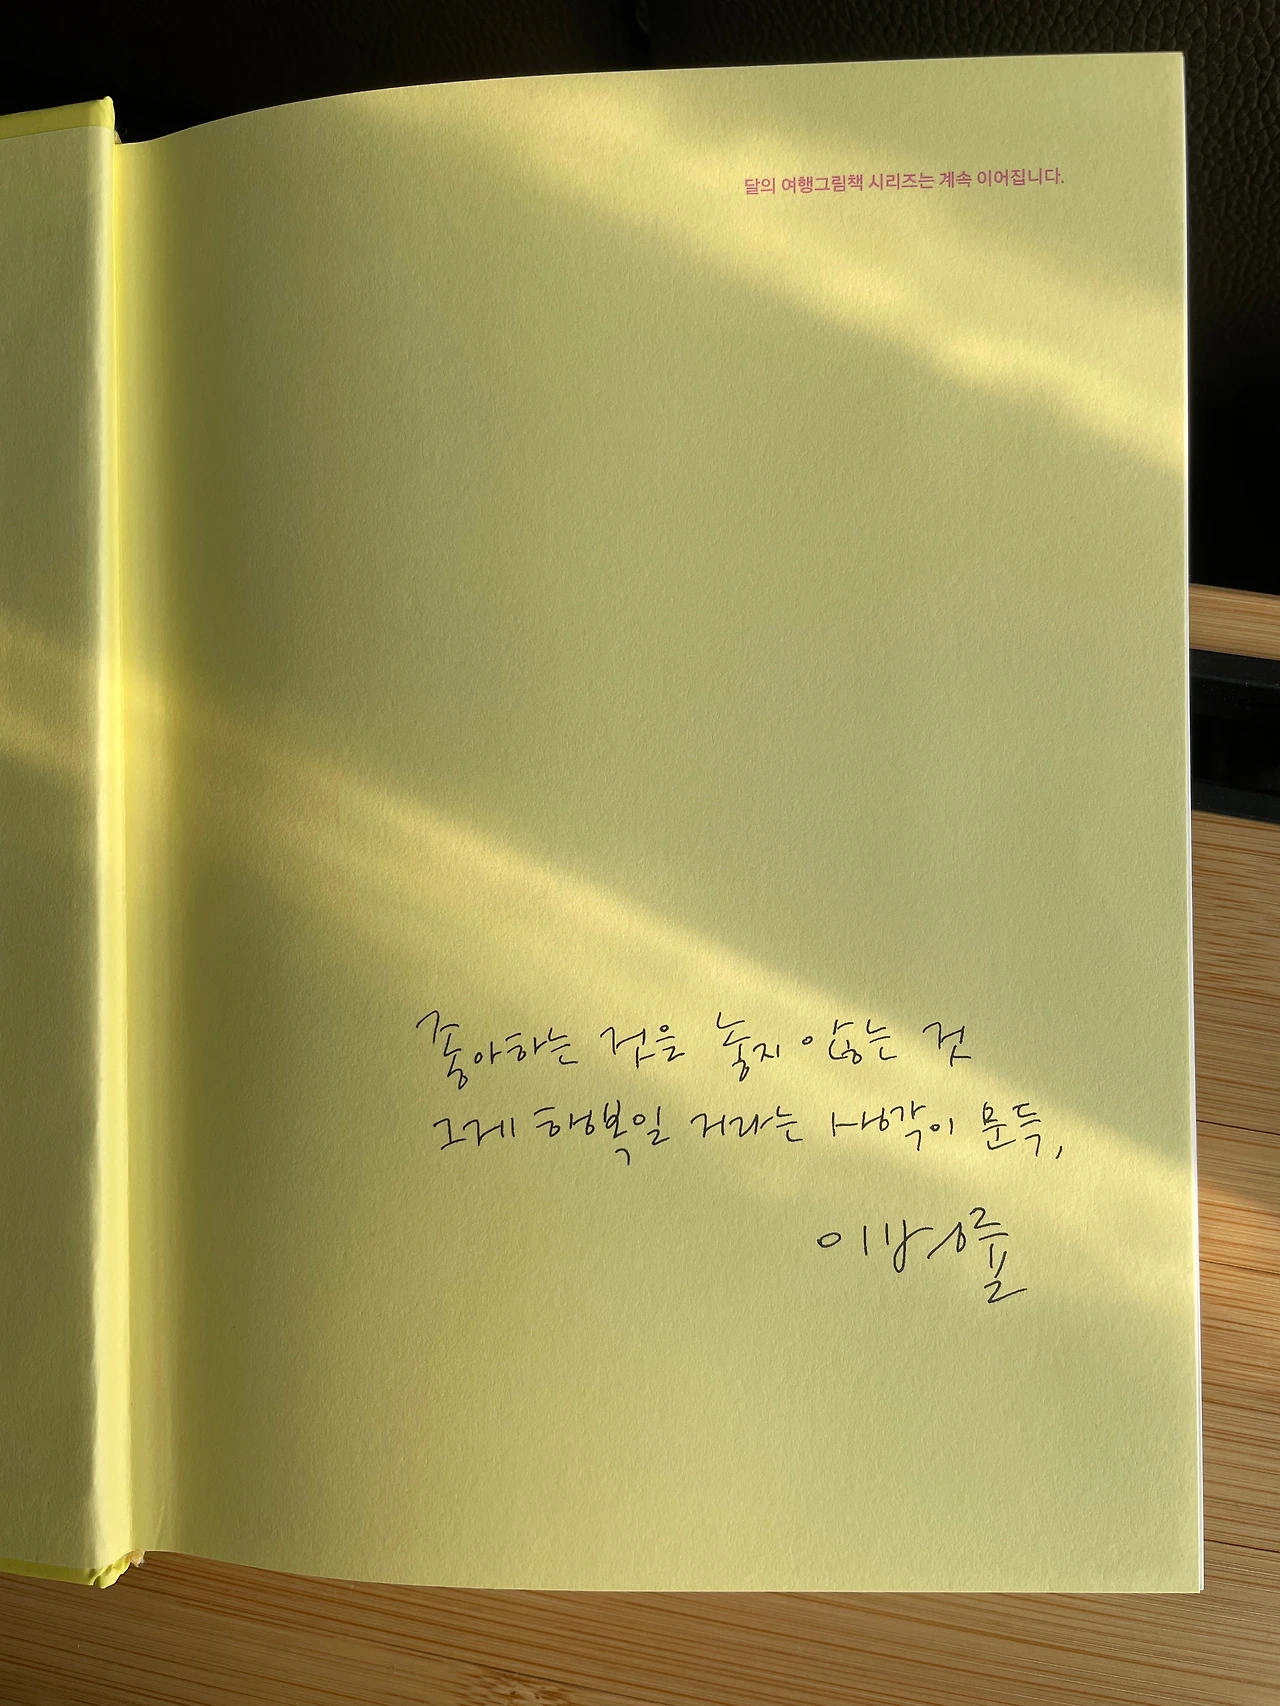 달의 여행그림책 시리즈는 계속 이어집니다.
좋아하는 것을 놓지 않는 것
그게 행복일 거라는 생각이 문득,
이병률